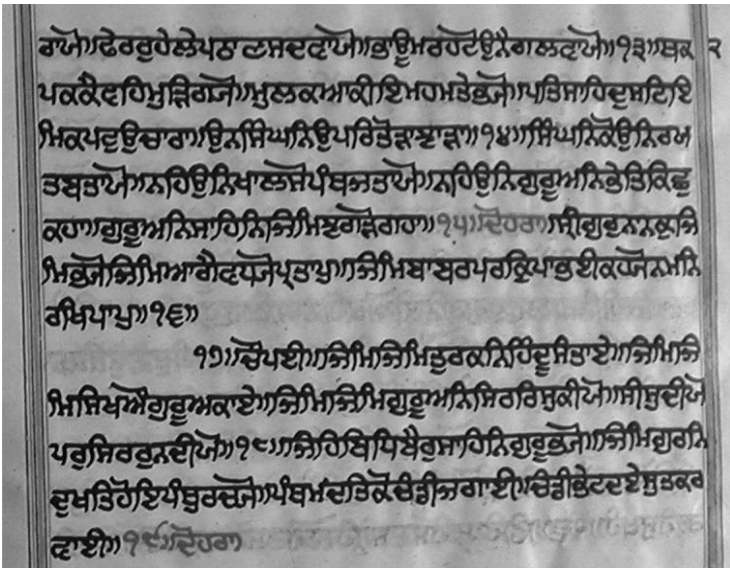 ਰਾਖੋ॥ਫੇਰਰੁਹੇਲੇਪਠਾਣਸਦਵਾਯੋ॥ਭਾਊਮਰਹਟੋਉਨੈਗਲਵਾਯੋ॥੧੩॥ਥਕ ੨
ਪਕਕੈਵਹਿਮੁੜਿਗਯੋ॥ਮੁਲਕਆਕੀਇਮਹਮਤੇਭਯੋ॥ਪਤਿਸਾਹਿਦੁਸਟਿਇ
ਮਿਕਪਟੁਉਚਾਰਾ॥ਉਨਸਿੰਘਨਿਉਪਰਿਤੋੜਾਝਾੜਾ॥੧੪॥ਸਿੰਘਨਿਕੋਉਨਿਰਖ
ਤਬਤਾਯੋ॥ਨਹਿਉਨਿਖਾਲਸੋਪੰਥਜਤਾਯੋ॥ਨਹਿਉਨਿਗੁਰੂਅਨਿਭੇਤਿਕਿਛੁ
ਕਹਾ॥ਗੁਰੂਅਨਿਸਾਹਿਨਿਜਿਮਿਝਗੜੋਰਹਾ॥੧੫॥ਦੋਹਰਾ॥ਸ੍ਰੀਗੁਰੁਨਨਕਜਿ
ਮਿਭਯੋਜਿਮਿਆਗੈਵਧਯੋਪ੍ਰਤਾਪੁ॥ਜਿਮਿਬਾਬਰਪਰਕ੍ਰਿਪਾਭਈਕਹਯੋਨਮਨਿ
ਰਖਿਪਾਪੁ॥੧੬॥
੧੭॥ਚੌਪਈ॥ਜਿਮਿਜਿਮਿਤੁਰਕਨਿਹਿੰਦੂਸੰਤਾਏ॥ਜਿਮਿਜਿ
ਮਿਸਿਖਔਗੁਰੂਅਕਾਏ॥ਜਿਮਿਜਿਮਿਗੁਰੂਅਨਿਸਿਰਰਿਸੁਕੀਯੋ॥ਸੀਸੁਦੀਯੋ
ਪਰੁਸਿਰਰੁਨਦੀਯੋ॥੧੮॥ਜਿਹਿਬਿਧਿਬੈਰੁਸਾਹਿਨਿਗੁਰੂਭਯੋ॥ਜਿਮਿਗੁਰਨਿ
ਦੁਖਤਿਹੋਇਪੰਥੁਰਚਯੋ॥ਪੰਥਮੰਦਤਿਕੋਚੰਡੀਜਗਾਈ॥ਚੰਡੀਭੇਟਦਏਸੁਤਕਰ
ਵਾਈ॥੧੯॥ਦੋਹਰਾ